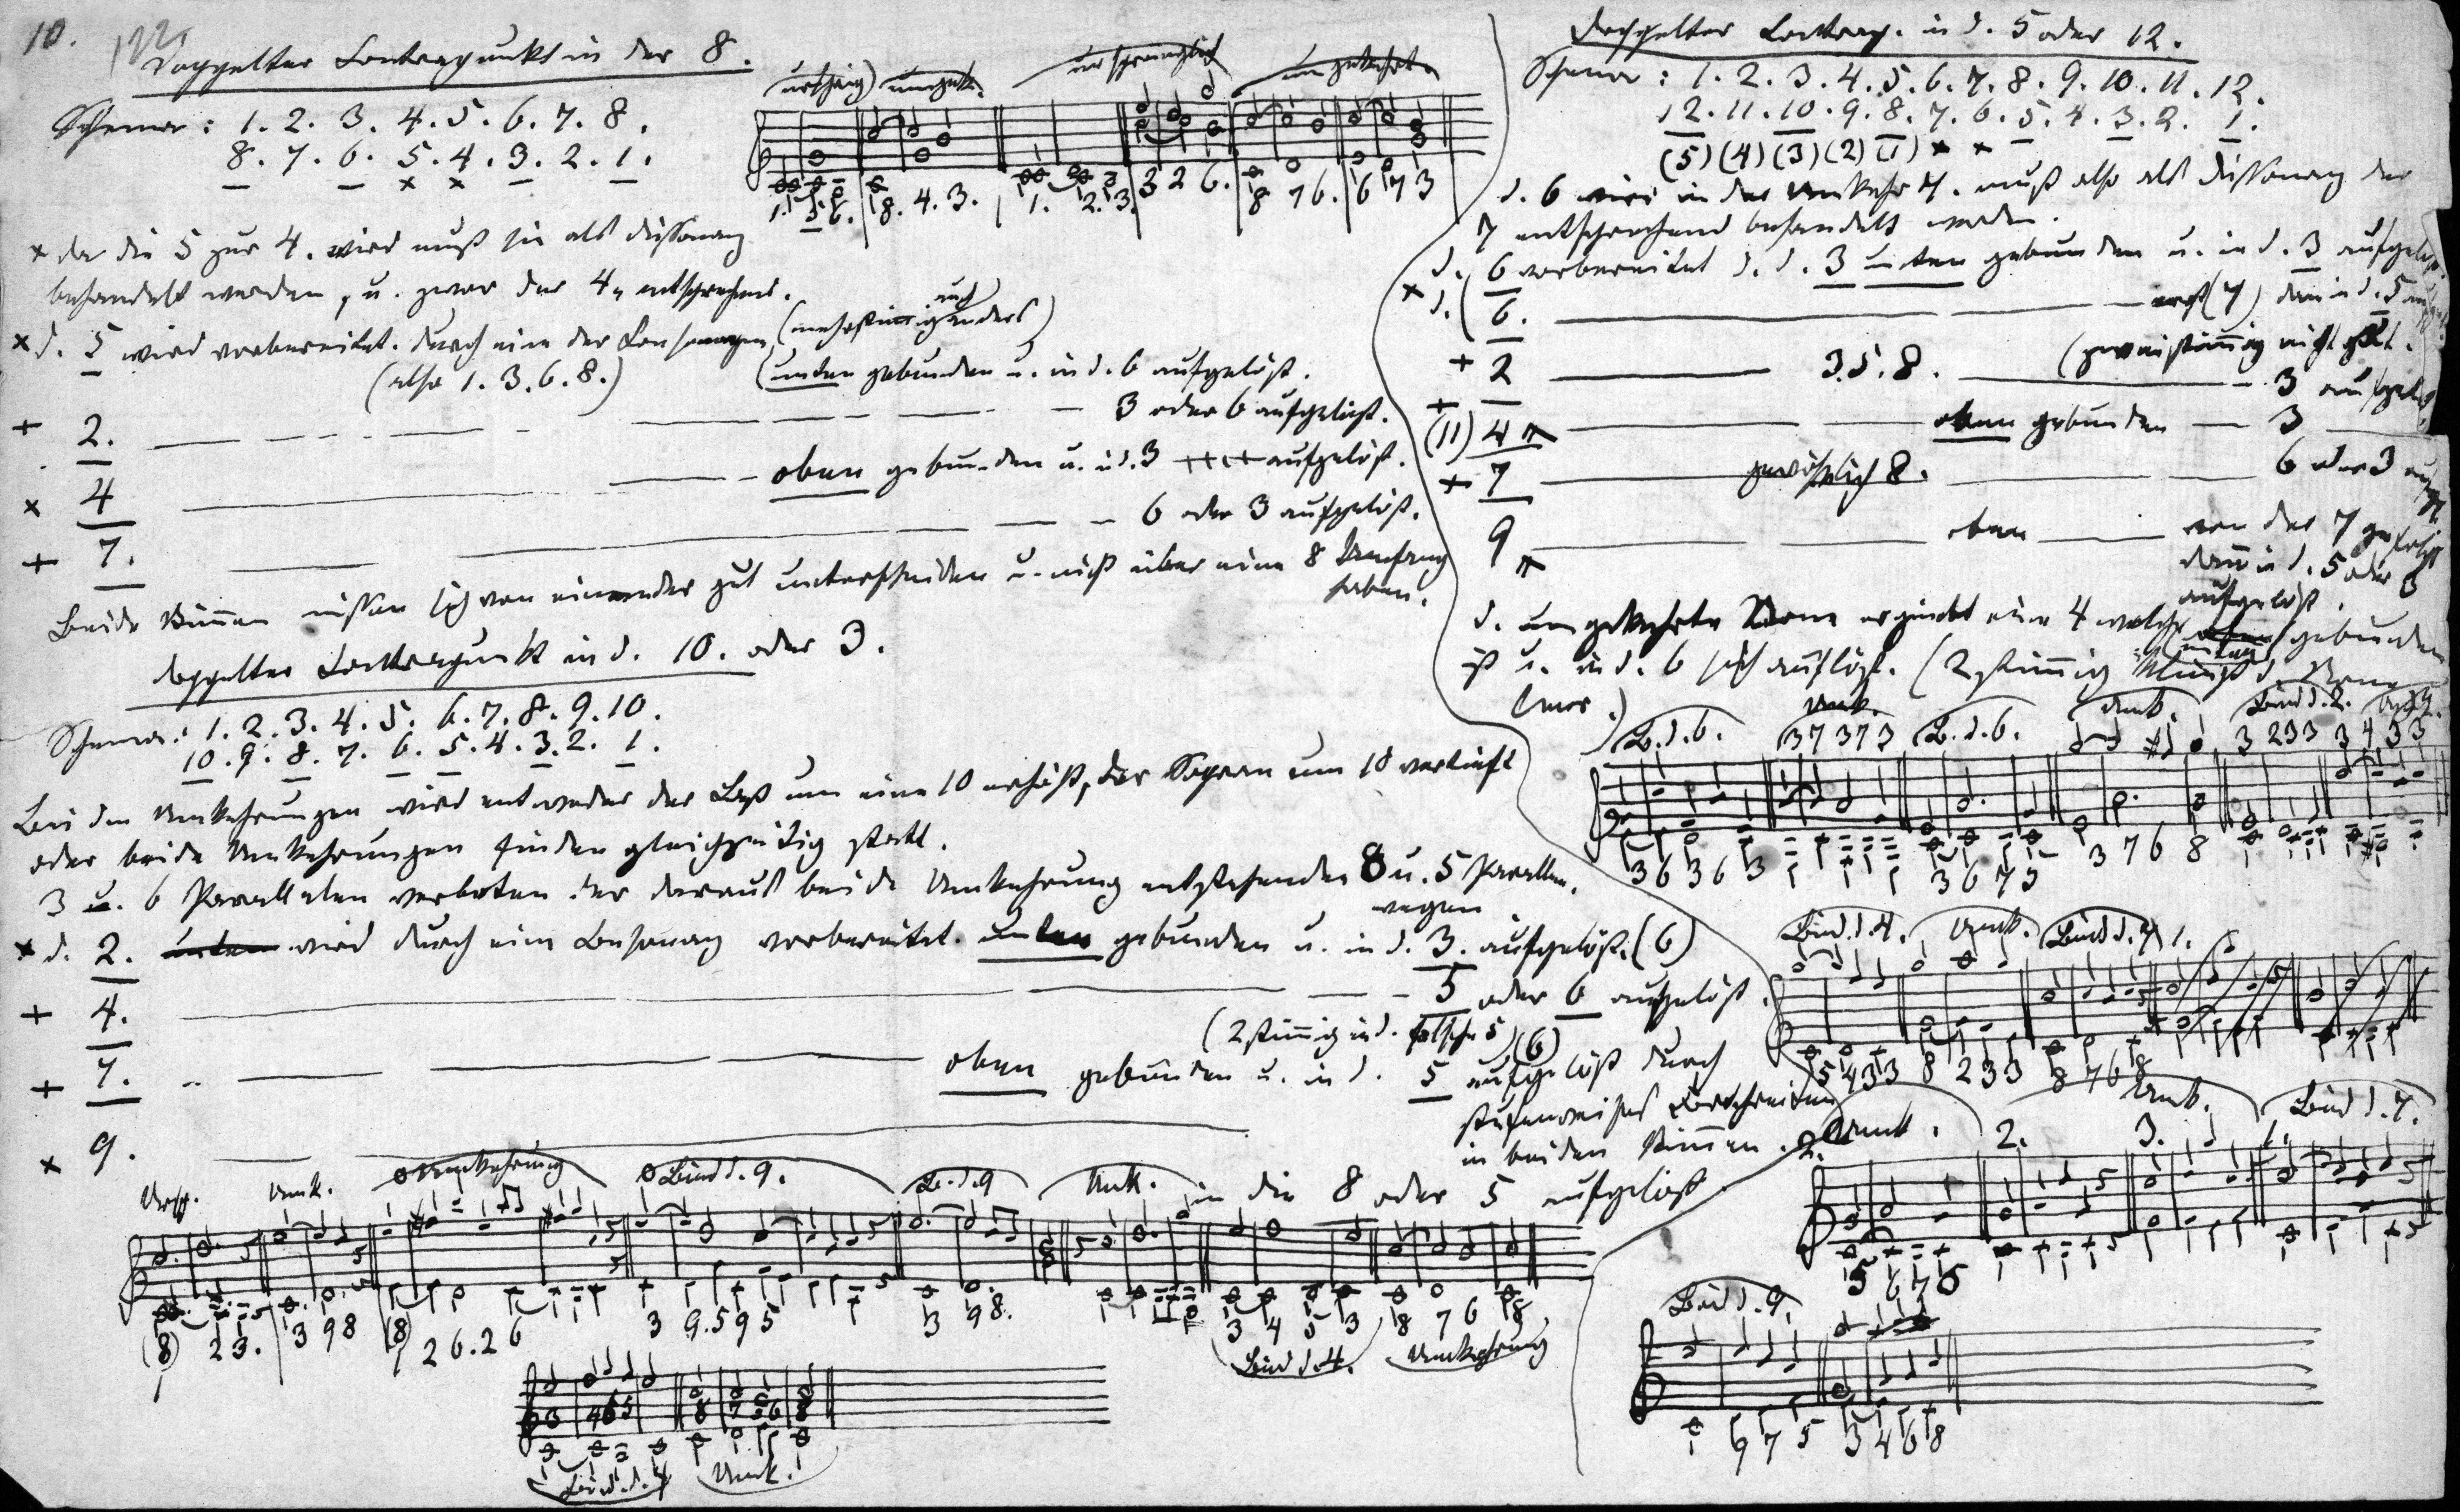 10.
Doppelter Contrapunkt in der 8.
Schema : 1. 2. 3. 4. 5. 6. 7. 8.
8. 7. 6. 5. 4. 3. 2. 1.
x x
ursprüngl umgek.
ursprünglich
umgekehrt
1. 5 6. 8. 4. 3. 1. 2. 3. 3 2 6. 8 7 6. 6 7 3
x da die 5 zur 4. wird muß sie als Dissonanz
behandelt werden, u. zwar der 4 entsprechend.
x d. 5 wird vorbereitet. durch eine der Consonanzen (mehrstimmig auch anders)
(also 1. 3. 6. 8.)
(unten gebunden u. in d. 6 aufgelöst.
+ 2. 3 oder 6 aufgelöst.
x 4 oben gebunden u. in d. 3 aufgelöst.
+ 7. 6 oder 3 aufgelöst.
Beide Stimmen müssen sich von einander gut unterscheiden u. nicht über eine 8 Umfang
haben.
doppelter Contrapunkt in d. 10. oder 3.
Schema : 1. 2. 3. 4. 5. 6. 7. 8. 9. 10.
10. 9. 8. 7. 6. 5. 4. 3. 2. 1.
Bei den Umkehrungen wird entweder der Baß um eine 10 erhöht, der Sopran um 10 vertieft
oder beide Umkehrungen finden gleichzeitig statt.
3 u. 6 Parallelen verboten der daraus beide Umkehrung entstehenden 8 u. 5 Parallen.
wegen
x d. 2. unten wird durch eine Consonanz vorbereitet. unten gebunden u. in d. 3. aufgelöst. (6)
+ 4. 5 oder 6 aufgelöst.
(2 stimmig in d. falsche 5) (6)
+ 7. oben gebunden u. in d. 5 aufgelöst durch
stufenweises Fortschreiten
in beiden Stimmen.
x 9. in die 8 oder 5 aufgelöst.
Urspr. Umk. Umkehrung Bind d. 9. B. d. 9 Umk.
(8) 2 3. 3 9 8 (8) 2 6. 2 6 3 9. 5 9 5 3 9 8. 3 4 5 3 8 7 6 8
Bind d. 4. Umkehrung
3 4 6 5 8 7 5 6 8
Bind. d. 4 Umk.
Doppelter Contrap. in d. 5 oder 12.
Schema : 1. 2. 3. 4. 5. 6. 7. 8. 9. 10. 11. 12.
12. 11. 10. 9. 8. 7. 6. 5. 4. 3. 2. 1.
(5) (4) (3) (2) (1) x x
d. 6 wird in der Umkehr 7. muß also als Dissonanz der
7 entsprechend behandelt werden.
x d. 6 vorbereitet d. d. 3 unten gebunden u. in d. 3 aufgelöst
d. (6. erst (7) dann in d. 5
(zweistimmig nicht gut.
+ 2 3. 5. 8. 3 aufgelöst
+ (11) 4 oben gebunden 3
+ 7 gewöhnlich 8. 6 oder 3
9 oben von der 7 gefolgt
dann in d. 5 oder 3
aufgelöst.
d. umgekehrte None ergiebt eine 4 welche unten gebunden
ist u. in d. 6 sich auflöst. (2 stimmig klingt d. None
leer.)
B. d. 6. Umk. B. d. 6. Umk. Bind d. 2. Umk.
3 7 3 7 3 3 2 3 3 3 4 3 3
3 6 3 6 3 3 6 7 5 3 7 6 8
Bind. d. 4. Umk. Bind d. 7 1.
5 4 3 3 8 2 3 3 8 7 6 8
2. Umk. 2. Umk. 3. Bind d. 7.
5 6 7 8
Bind d. 9.
9 7 5 3 4 6 8